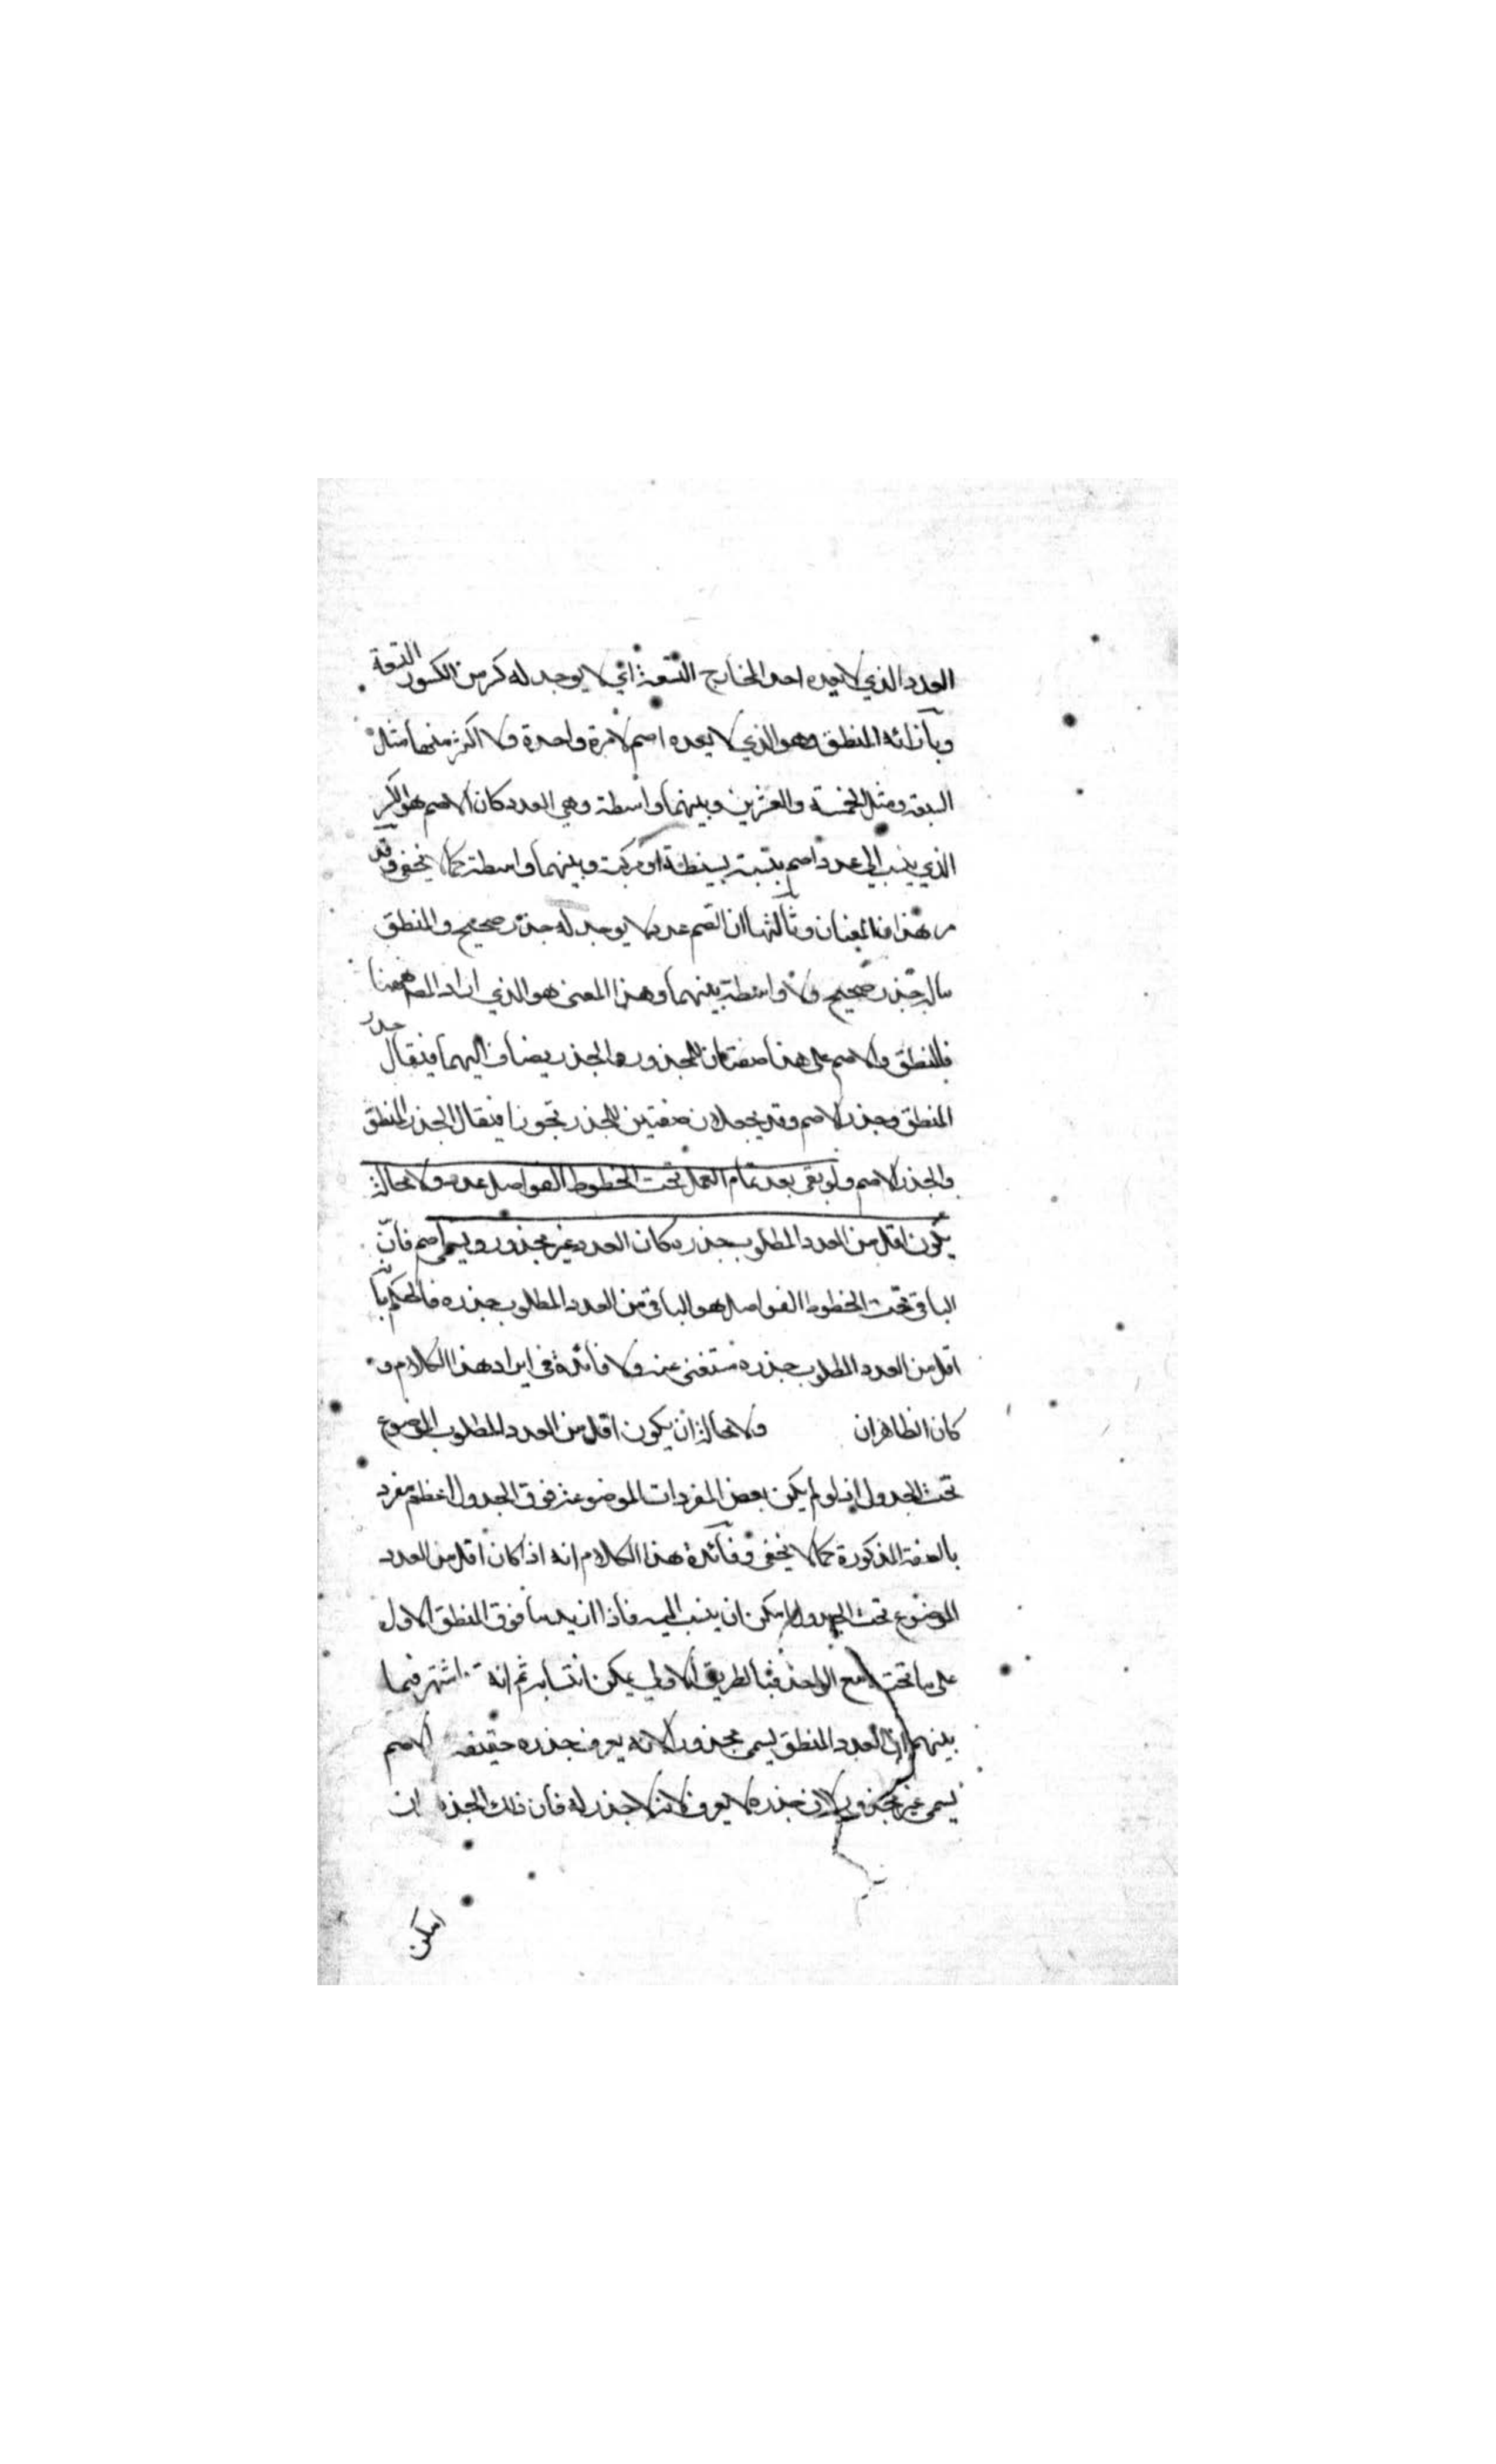 العدد الذي لا يعده احد المخارج التسعة اي لا يوجد له كسر من الكسور التسعة
وبازائه المنطق وهو الذي لا يعده اصم لا مرة واحدة ولا اكثر منها مثال
السبعة ومثل الخمسة والعشرين وبينهما واسطة وهي العدد كان الاصم هو الكسر
الذي ينسب الى عدد اصم بنسبة بسيطة او مركبة وبينهما واسطة كما لا يخفى وقد
مر هذان المعنيان وثالثها ان الاصم عدد لا يوجد له جذر صحيح والمنطق
ماله جذر صحيح ولا واسطة بينهما وهذا المعنى هو الذي اراد المصـ ههنا
فالمنطق والاصم على هذا صفتان للمجذور والجذر يضاف اليهما فيقال جذر
المنطق وجذر الاصم وقد يجعلان صفتين للجذر تجوزا فيقال الجذر المنطق
والجذر الاصم ولو بقي بعد تمام العمل تحت الخطوط الفواصل عدد ولا محالة
يكون اقل من العدد المطلوب جذره كان العدد غير مجذور ويسمى اصم فان
الباقي تحت الخطوط الفواصل هو الباقي من العدد المطلوب جذره فالحكم بانه
اقل من العدد المطلوب جذره مستغنى عنه ولا فائدة في ايراد هذا الكلام و
كان الظاهر ان ولا محالة ان يكون اقل من العدد المطلوب الموضوع
تحت الجدول اذ لو لم يكن بعض المفردات الموضوعة فوق الجدول اعظم مفرد
بالصفة المذكورة كما لا يخفى وفائدة هذا الكلام انه اذا كان اقل من العدد
الموضوع تحت الجدول امكن ان ينسب اليه فاذا ازيد ما فوق المنطق الاول
على ما تحت مع الواحد فبالطريق الاولى يمكن انتسابه ثم انه اشتهر فيما
بينهم ان العدد المنطق يسمى مجذورا لانه يعرف جذره حقيقة الاصم
يسمى غير مجذور لان جذره لا يعرف لانه لا جذر له فان ذلك الجذر ان
امكن